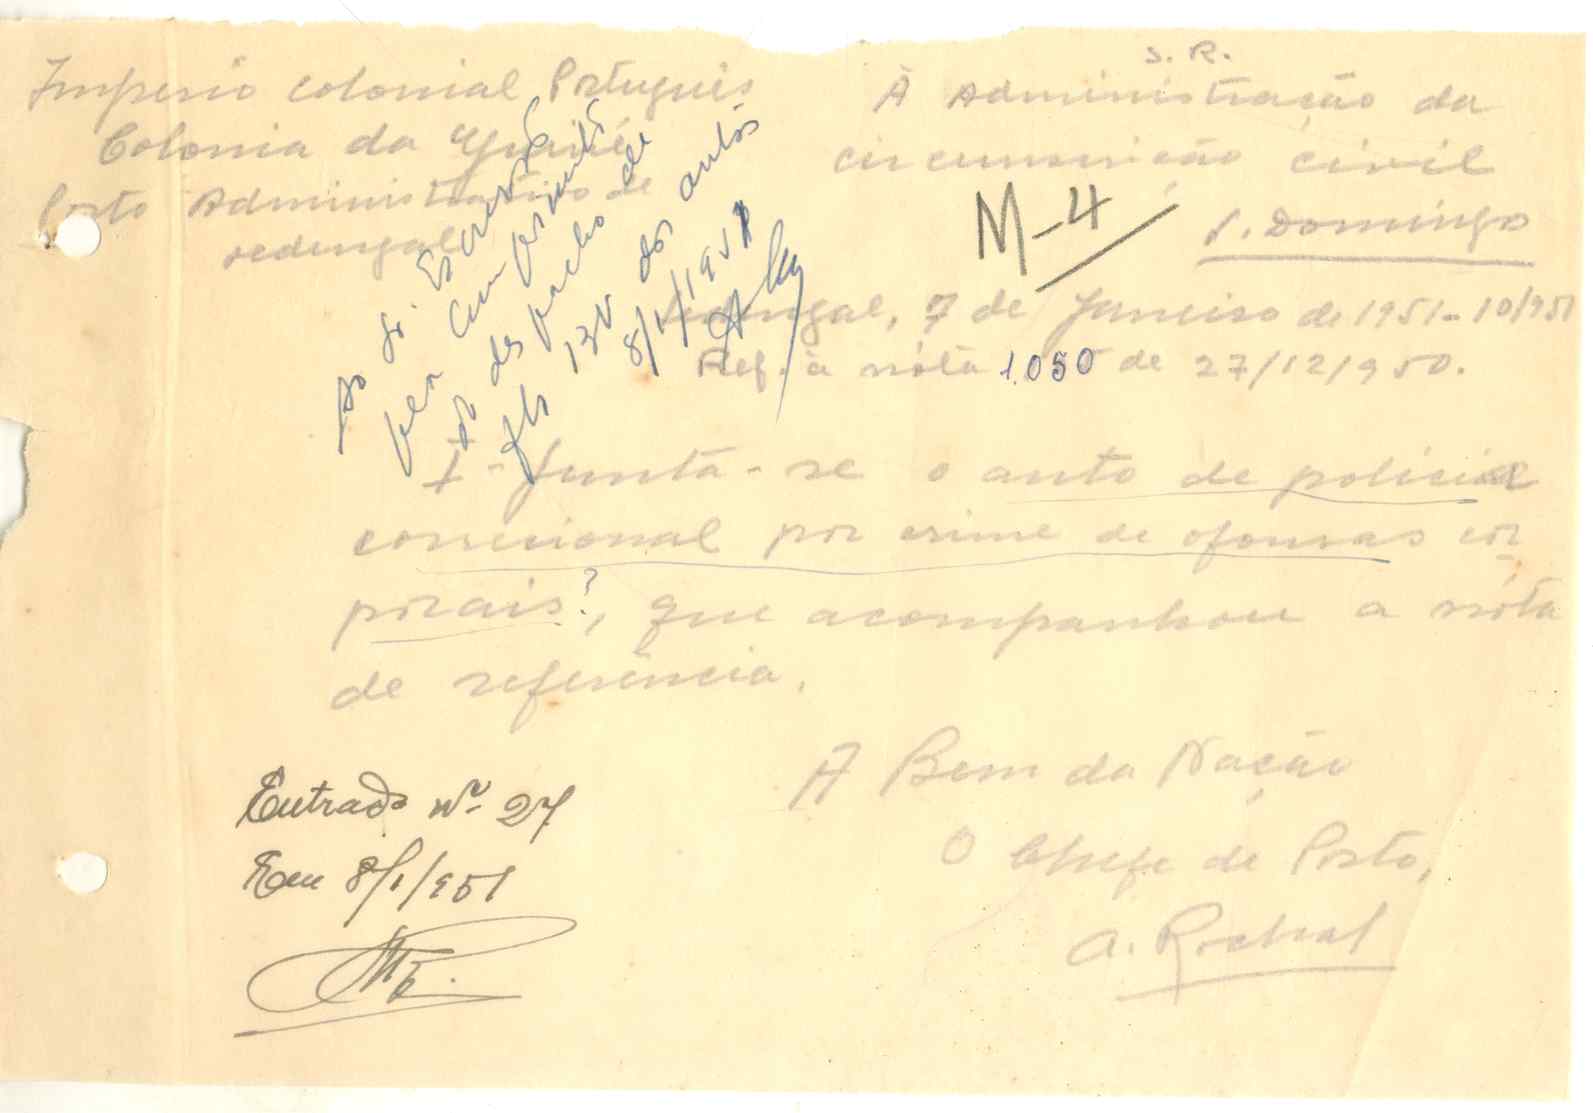 S. R.
Imperio colonial Português
Colonia da Guiné
Posto Administrativo de
Sedengal
À Administração da
circunscrição civil
S. Domingo
M-4
Sedengal, 7 de Janeiro de 1951 - 10/951
Ref. à nóta 1.050 de 27/12/950.
Ao Sr. Escrivão
para cumprimento
do despacho de
fls 13v dos autos
8/1/1951
1 - Junta-se o auto de policia
correcional por crime de ofensas cor
porais?, que acompanhou a nóta
de referência.
A Bem da Nação
O Chefe de Posto,
Entrada nº 27
Em 8/1/951